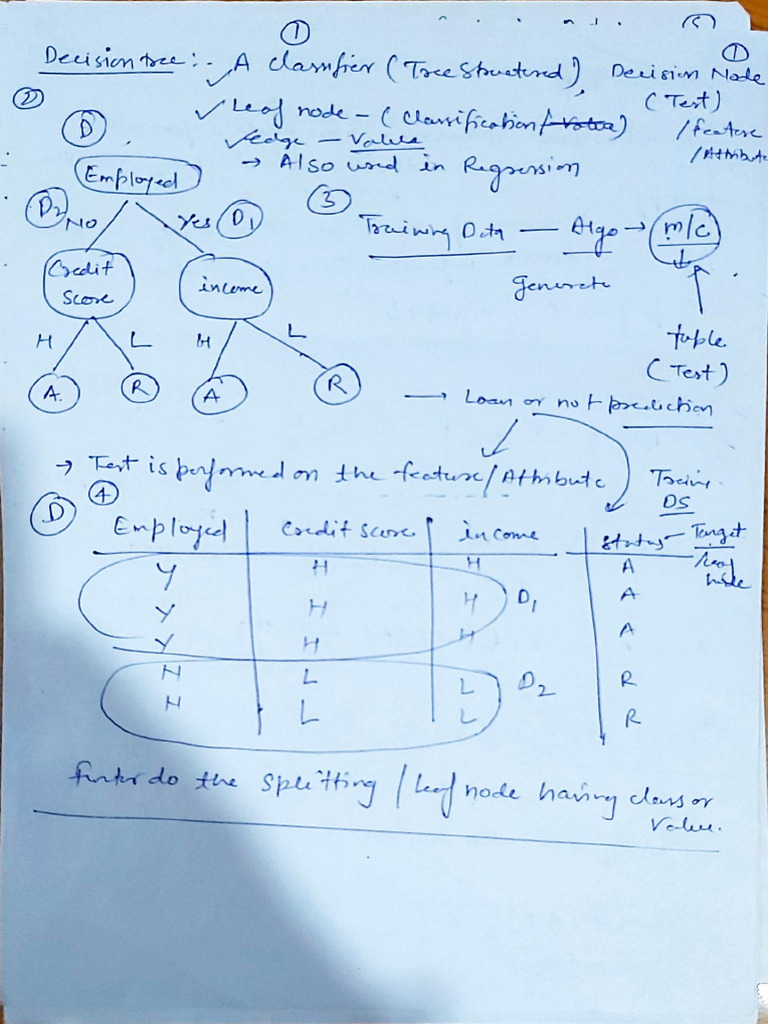 ①
Decision tree :- A classifier (Tree Structured), Decision Node ①
(Test)
/feature
/Attribute
✓ Leaf node - (classification/
✓ edge - Value
→ Also used in Regression
②
D
Employed
D2 No Yes D1
Credit Score
income
H L H L
A R A R
③
Training Data — Algo → m/c
generate
tuple
(Test)
→ Loan or not prediction
→ Test is performed on the feature/Attribute
Train.
DS
D ④
Employed Credit Score income Status - Target
/leaf node
Y H H A
Y H H D1 A
Y H H A
N L L D2 R
N L L R
do the splitting / leaf node having class or
Value.